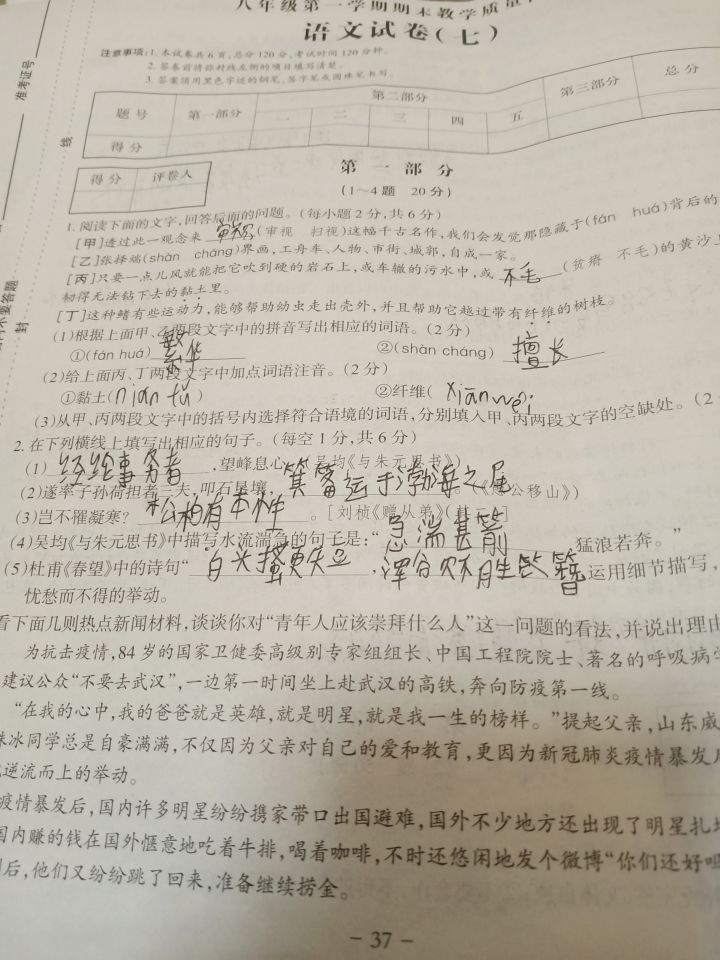 八年级第一学期期末教学质量
语文试卷(七)
准考证号
线
封
注意事项:1. 本试卷共6页,总分120分,考试时间120分钟。
2. 答卷前将弥封线左侧的项目填写清楚。
3. 答案须用黑色字迹的钢笔、签字笔或圆珠笔书写。
题号 第一部分 第二部分 第三部分 总分
一 二 三 四 五
得分
得分 评卷人
第一部分
(1~4题 20分)
1. 阅读下面的文字,回答后面的问题。(每小题2分,共6分)
[甲]透过此一观念来 审视 (审视 扫视)这幅千古名作,我们会发觉那隐藏于(fán huá)背后的
[乙]张择端(shàn cháng)界画,工舟车、人物、市街、城郭,自成一家。
[丙]只要一点儿风就能把它吹到硬的岩石上,或车辙的污水中,或 不毛 (贫瘠 不毛)的黄沙上
韧得无法钻下去的黏土里。
[丁]这种鳍有些运动力,能够帮助幼虫走出壳外,并且帮助它越过带有纤维的树枝。
(1)根据上面甲、乙两段文字中的拼音写出相应的词语。(2分)
①(fán huá) 繁华 ②(shàn cháng) 擅长
(2)给上面丙、丁两段文字中加点词语注音。(2分)
①黏土( nián tǔ ) ②纤维( xiān wéi
(3)从甲、丙两段文字中的括号内选择符合语境的词语,分别填入甲、丙两段文字的空缺处。(2
2. 在下列横线上填写出相应的句子。(每空1分,共6分)
(1) 经纶事务者 ,望峰息心。(吴均《与朱元思书》)
(2)遂率子孙荷担者三夫,叩石垦壤, 箕畚运于渤海之尾 。(《愚公移山》)
(3)岂不罹凝寒? 松柏有本性 。[刘桢《赠从弟》(其二)]
(4)吴均《与朱元思书》中描写水流湍急的句子是:“ 急湍甚箭 猛浪若奔。”
(5)杜甫《春望》中的诗句“ 白头搔更短 , 浑欲不胜簪 运用细节描写,
忧愁而不得的举动。
看下面几则热点新闻材料,谈谈你对“青年人应该崇拜什么人”这一问题的看法,并说出理由
为抗击疫情,84岁的国家卫健委高级别专家组组长、中国工程院院士、著名的呼吸病学
建议公众“不要去武汉”,一边第一时间坐上赴武汉的高铁,奔向防疫第一线。
“在我的心中,我的爸爸就是英雄,就是明星,就是我一生的榜样。”提起父亲,山东威
冰同学总是自豪满满,不仅因为父亲对自己的爱和教育,更因为新冠肺炎疫情暴发
逆流而上的举动。
疫情暴发后,国内许多明星纷纷携家带口出国避难,国外不少地方还出现了明星扎堆
国内赚的钱在国外惬意地吃着牛排,喝着咖啡,不时还悠闲地发个微博“你们还好吗
后,他们又纷纷跳了回来,准备继续捞金。
- 37 -